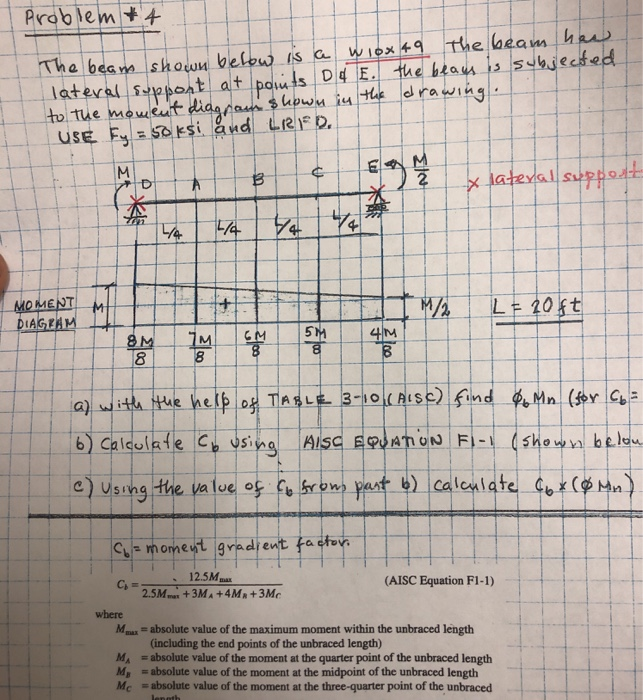 Problem # 4
The beam shown below is a W10x49 the beam has
lateral support at points D & E. the beam is subjected
to the moment diagram shown in the drawing.
USE Fy = 50 ksi and LRFD.
M D A B C E M/2
x lateral support
L/4 L/4 L/4 L/4
MOMENT DIAGRAM M + M/2 L = 20 ft
8M/8 7M/8 6M/8 5M/8 4M/8
a) with the help of TABLE 3-10 (AISC) find ϕb Mn (for Cb =
b) Calculate Cb using AISC EQUATION F1-1 (shown below
c) Using the value of Cb from part b) calculate Cb x (ϕ Mn)
Cb = moment gradient factor.
Cb = 12.5Mmax / 2.5Mmax + 3MA + 4MB + 3MC (AISC Equation F1-1)
where
Mmax = absolute value of the maximum moment within the unbraced length
(including the end points of the unbraced length)
MA = absolute value of the moment at the quarter point of the unbraced length
MB = absolute value of the moment at the midpoint of the unbraced length
MC = absolute value of the moment at the three-quarter point of the unbraced
length